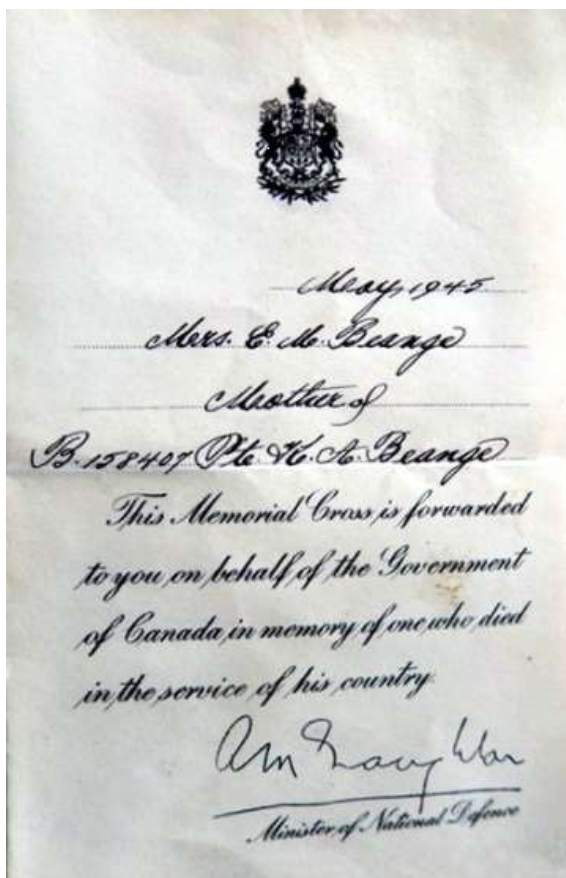 May, 1945
Mrs. E. M. Beange
Mother of
B.158407 Pte. K. A. Beange
This Memorial Cross is forwarded
to you on behalf of the Government
of Canada in memory of one who died
in the service of his country.
Minister of National Defence